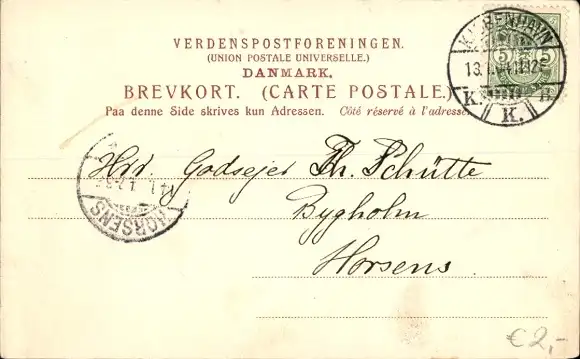 VERDENSPOSTFORENINGEN.
(UNION POSTALE UNIVERSELLE.)
DANMARK.
BREVKORT. (CARTE POSTALE.)
Paa denne Side skrives kun Adressen. Côté réservé à l'adresse.
KJØBENHAVN
K.
K.
5 5
Hrr. Godsejer Th. Schütte
Bygholm
Horsens
HORSENS
€2,-